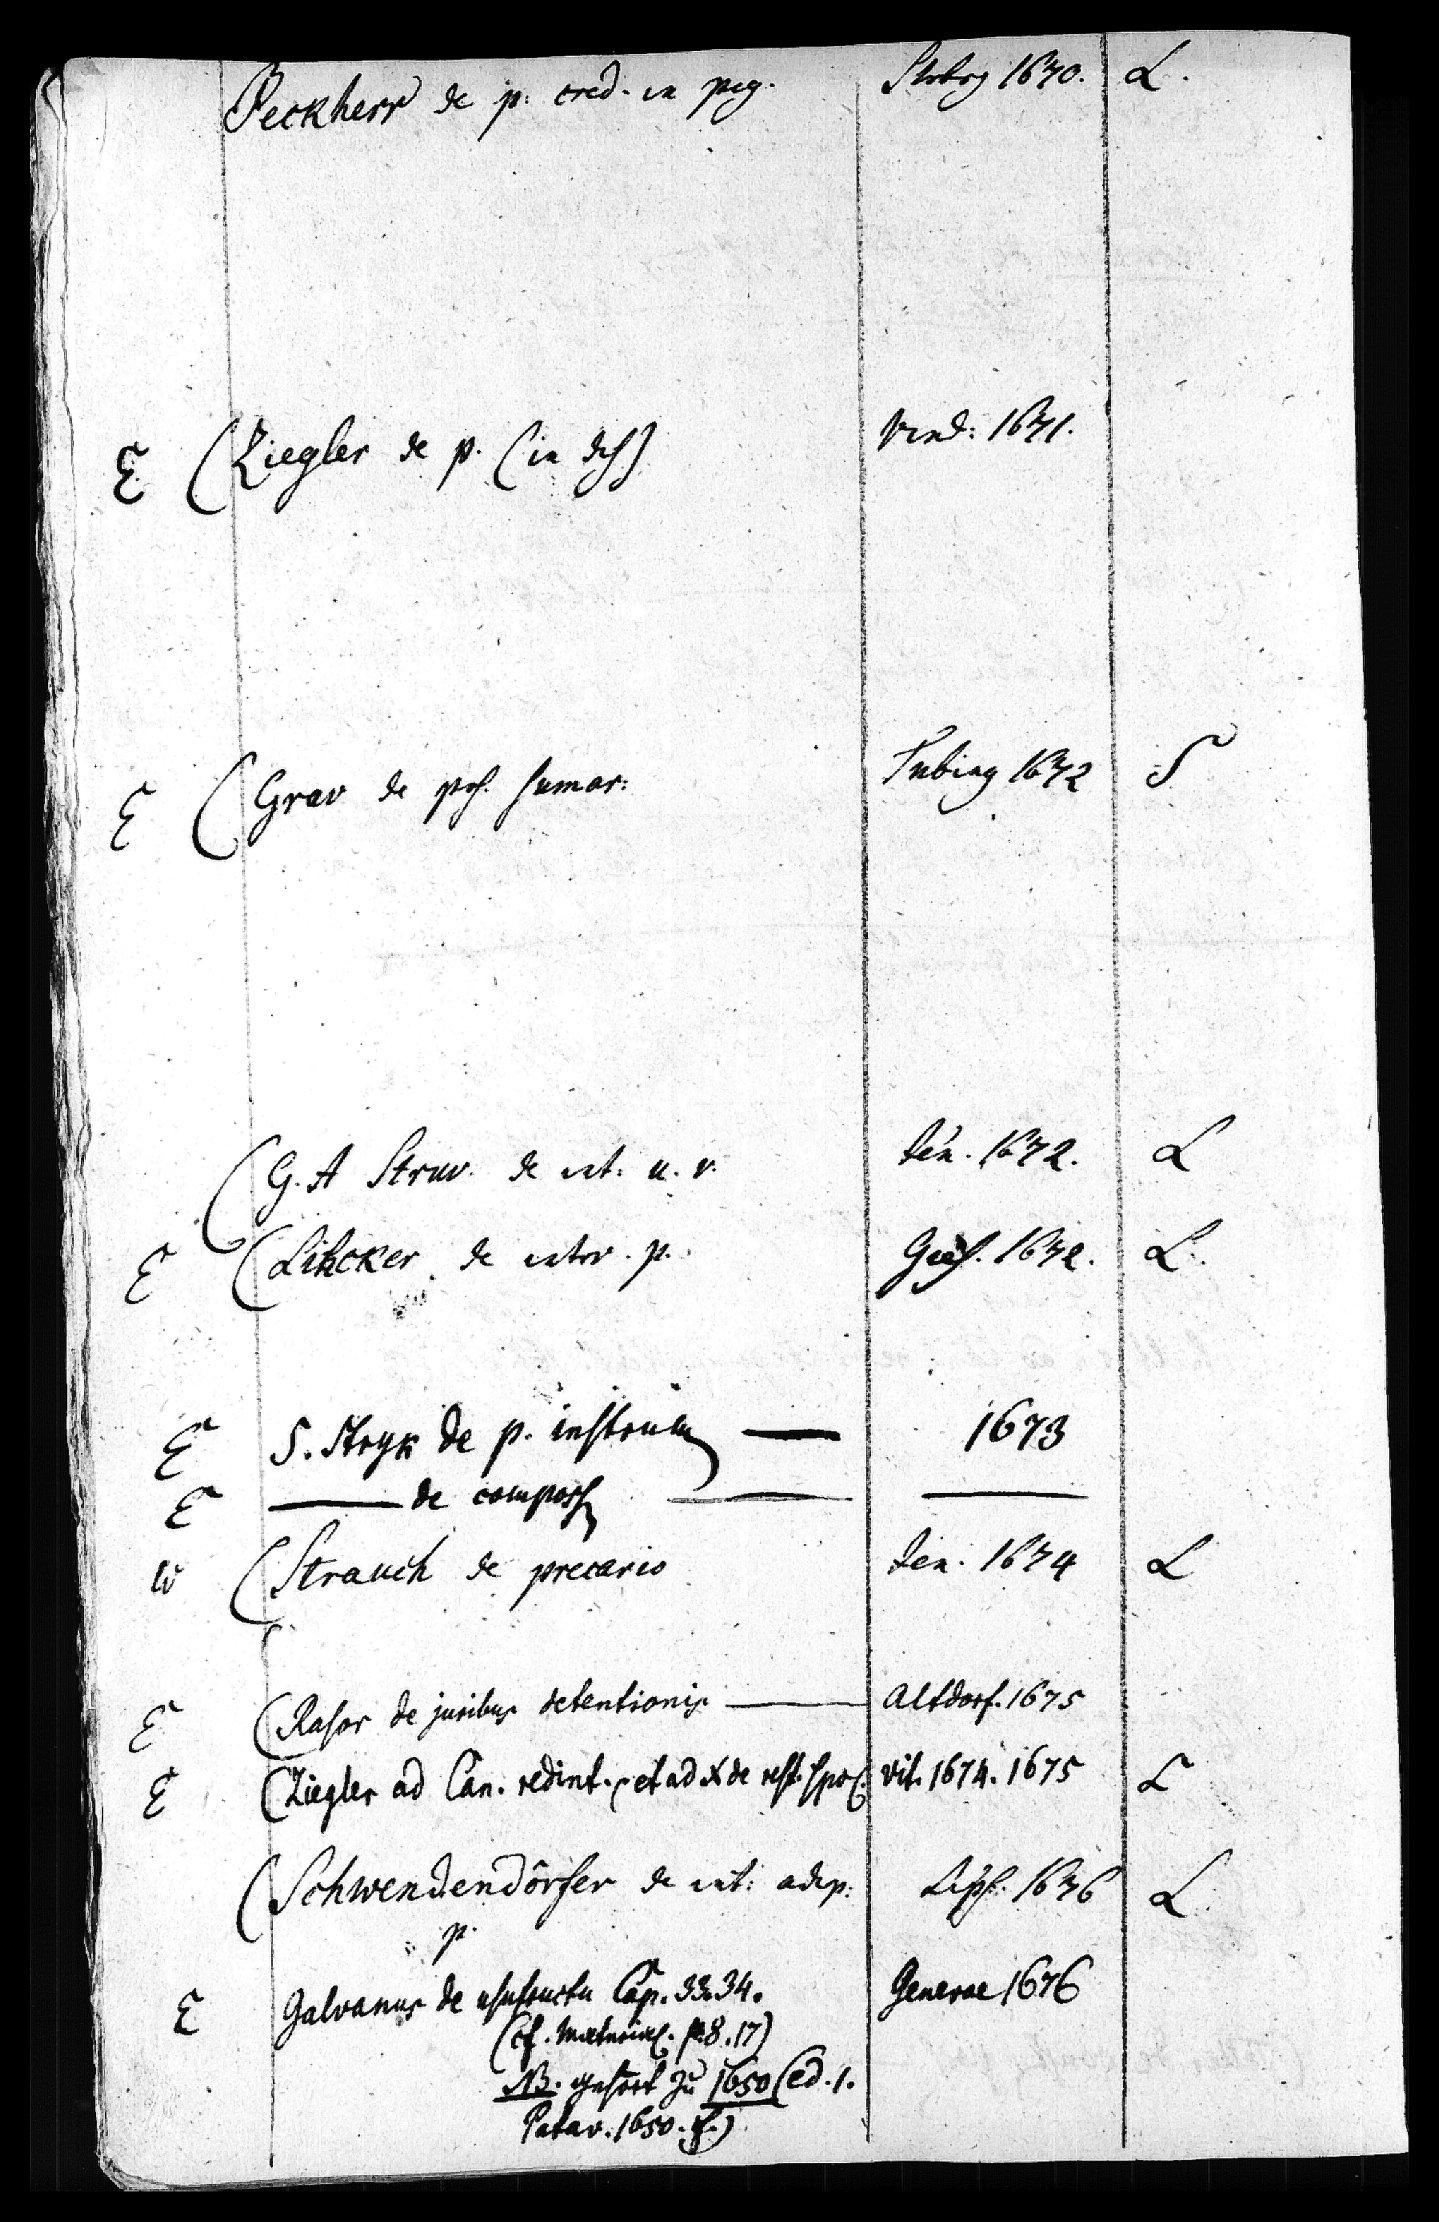 Peckherr de p. cred. in pig. Strbrg 1670. L.
E (Ziegler de p. (in dss) Vind: 1671.
E (Grav de pss. sumar: Tubing 1672 S
(G. A Struv. de int. u. v. Ien. 1672. L
E (Lincker de intrr. p. Giess. 1672. L.
E S. Stryk de p. instrum — 1673
E — de composs — —
W (Strauch de precario Ien. 1674 L
E (Rasor de juribus detentionis — Altdorf. 1675
E (Ziegler ad Can. redint. et ad X de rest. spol. Vit. 1674. 1675 L
(Schwendendörfer de int: adip: Lips. 1676 L
p.
E Galvanus de usufructu Cap. 33.34. Genevae 1676
(cf. Material. p. 8. 17)
NB. gehört zu 1650 (Ed. 1.
Patav. 1650. f.)